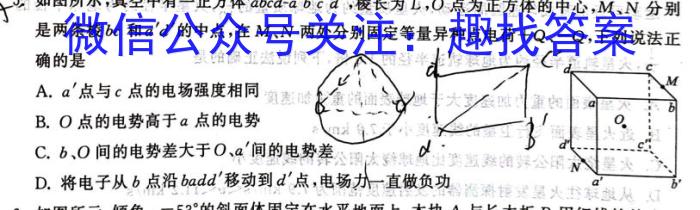 如图所示,真空中有一正方体abcd-a'b'c'd',棱长为L,O点为正方体的中心,M、N分别
是两条棱bc和a'd'的中点,在M、N两处分别固定等量异种点电荷
微信公众号关注:趣找答案
下列说法正
确的是
A. a'点与c点的电场强度相同
B. O点的电势高于a点的电势
C. b、O间的电势差大于O、a'间的电势差
D. 将电子从b点沿badd'移动到d'点,电场力一直做负功
d
C
d'
B'
d
c
M
a
b
O
d'
c'
N
a'
b'
53°的斜面体固定在水平地面上